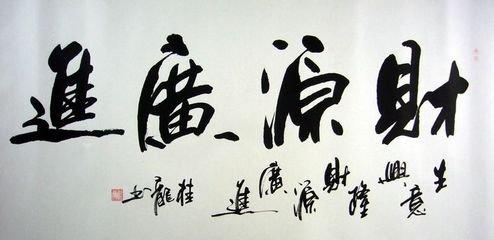 財源廣進
生意興隆財源廣進
桂龍书